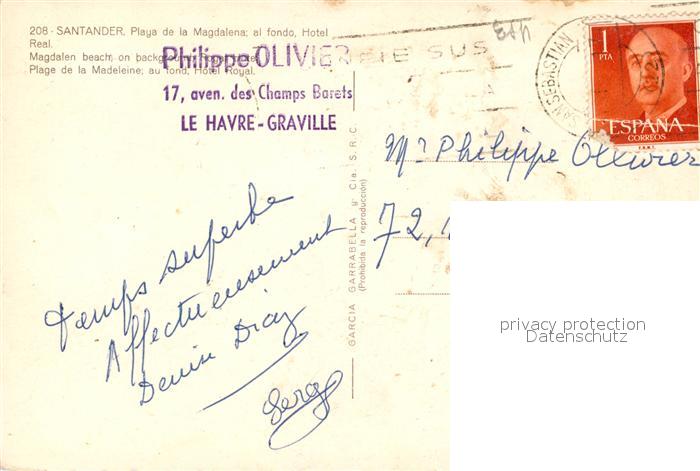 208 - SANTANDER. Playa de la Magdalena; al fondo, Hotel
Real.
Magdalen beach; on background, Royal Hotel.
Plage de la Madeleine; au fond, Hotel Royal.
Philippe OLIVIER
17, aven. des Champs Barets
LE HAVRE-GRAVILLE
SUS
SAN SEBASTIAN
1
PTA
ESPAÑA
CORREOS
F.N.M.T.
GARCIA GARRABELLA y Cía. S.R.C.
(Prohibida la reproducción)
Mr Philippe Ollivier
72,
Temps superbe
Affectueusement
Denise Diaz
Serge
privacy protection
Datenschutz